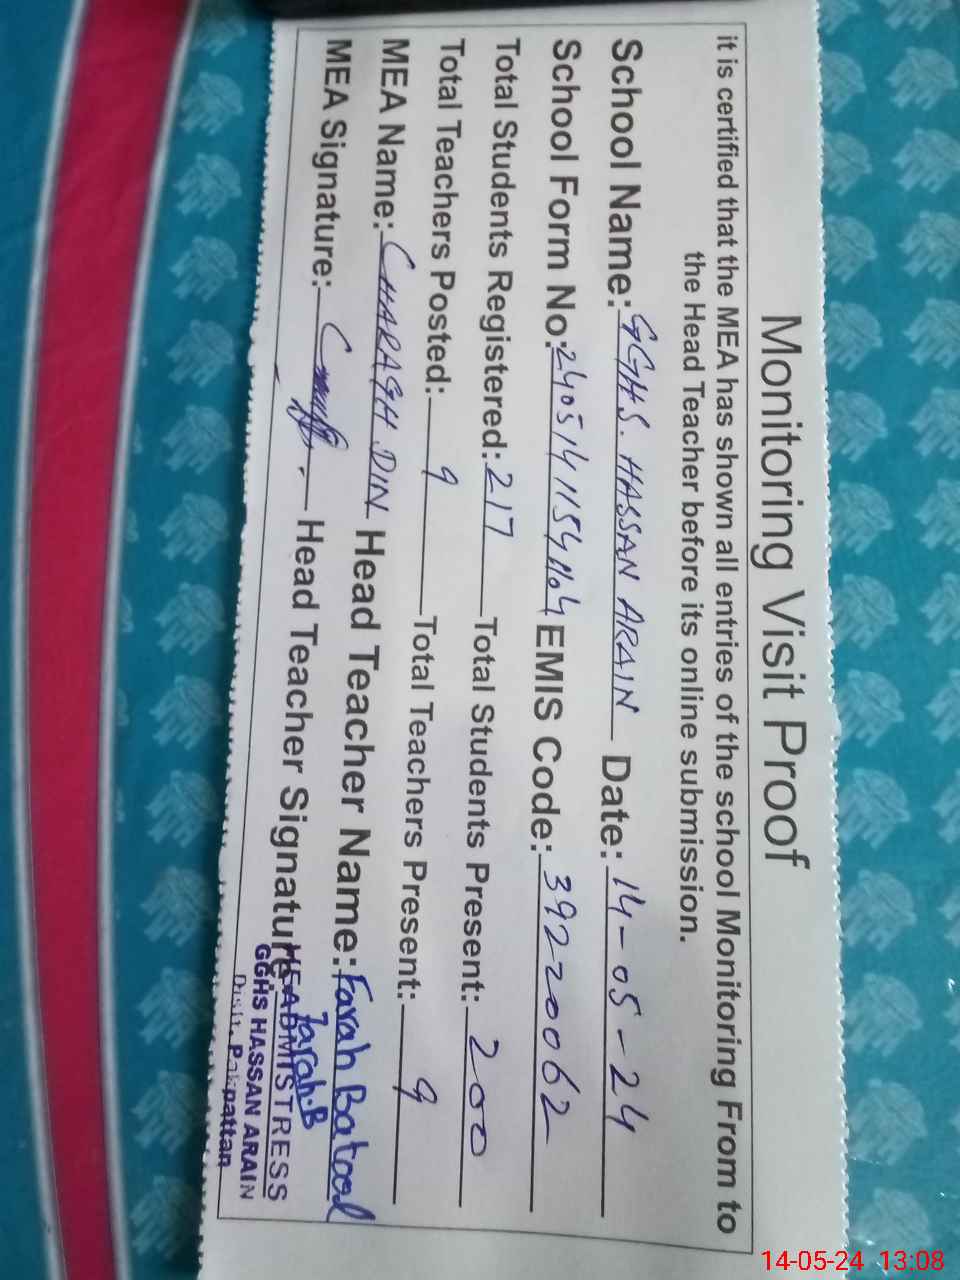 Monitoring Visit Proof
it is certified that the MEA has shown all entries of the school Monitoring From to
the Head Teacher before its online submission.
School Name: GGHS. HASSAN ARAIN Date: 14-05-24
School Form No: 2405141154404 EMIS Code: 39220062
Total Students Registered: 217 Total Students Present: 200
Total Teachers Posted: 9 Total Teachers Present: 9
MEA Name: CHARAGH DIN Head Teacher Name: Farah Batool
MEA Signature: Head Teacher Signature: Farah.B
HEADMISTRESS
GGHS HASSAN ARAIN
Distt. Pakpattan
14-05-24 13:08